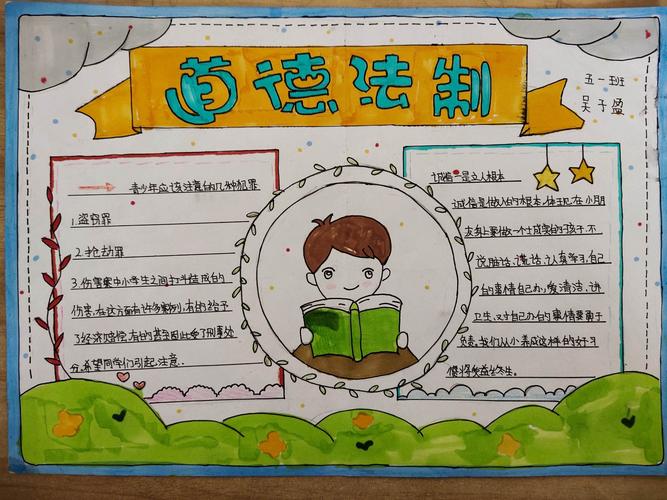 道德法制
五一班
吴子盈
青少年应该注意的几种犯罪
1.盗窃罪
2.抢劫罪
3.伤害案中小学生之间打斗造成的
伤害,在这方面有许多案例,有的给予
了经济赔偿,有的甚至因此受了刑事处
分.希望同学们引起.注意..
诚信一是立人根本
诚信是做人的根本,体现在小朋
友身上要做一个士成实的孩子,不
说脏话、谎话,认真学习,自己
的事情自己办,爱清洁,讲
卫生、对自己办的事情要勇于
负责。我们从小养成这样的好习
惯将受益终生。